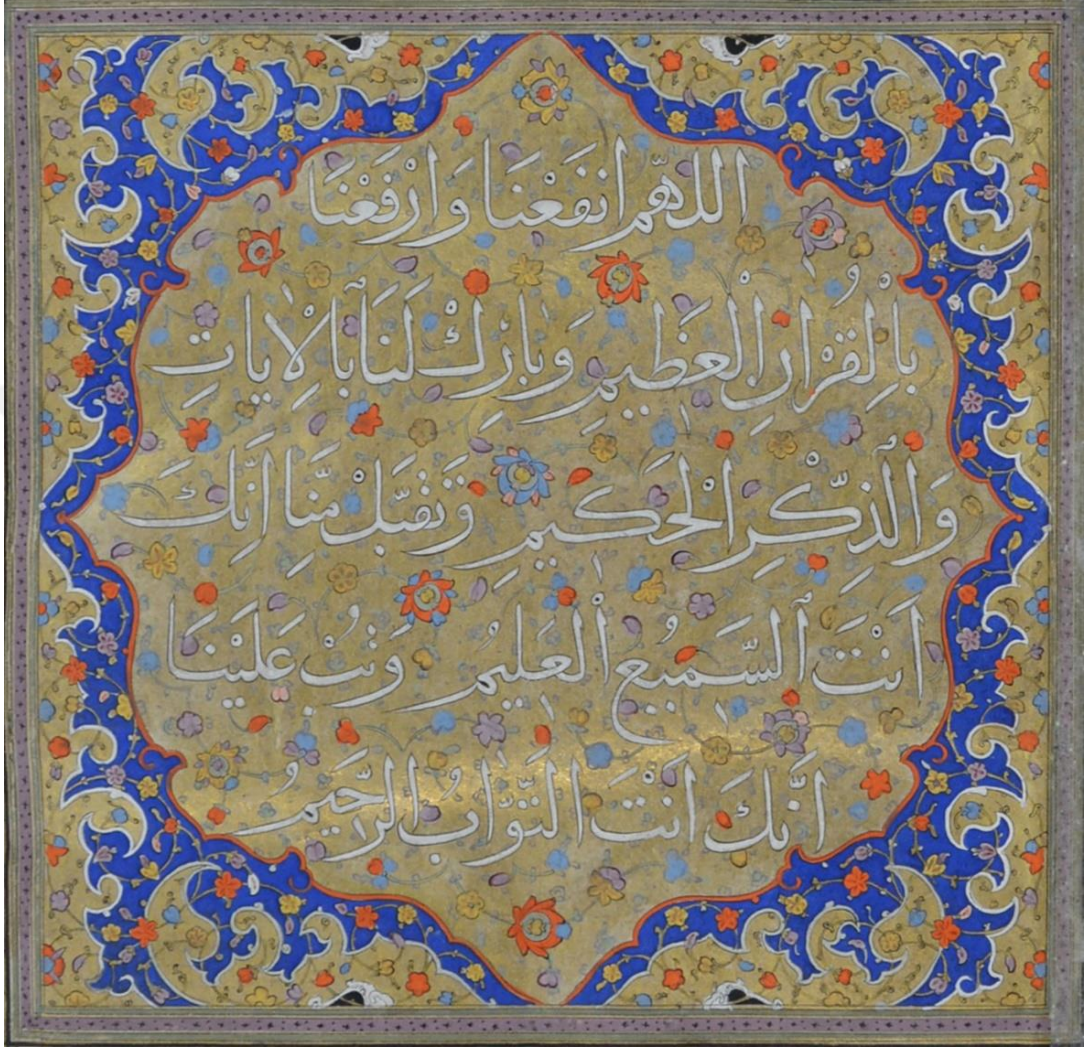 اللهم انفعنا وَارْفَعْنَا
بِالْقُرْاٰنِ الْعَظِيمِ وَبَارِكْ لَنَا بِالْاٰيَاتِ
وَالذِّكْرِ الْحَكِيمِ وَتَقَبَّلْ مِنَّا اِنَّكَ
اَنْتَ السَّمِيعُ الْعَلِيمُ وَتُبْ عَلَيْنَا
اِنَّكَ اَنْتَ التَّوَّابُ الرَّحِيمُ